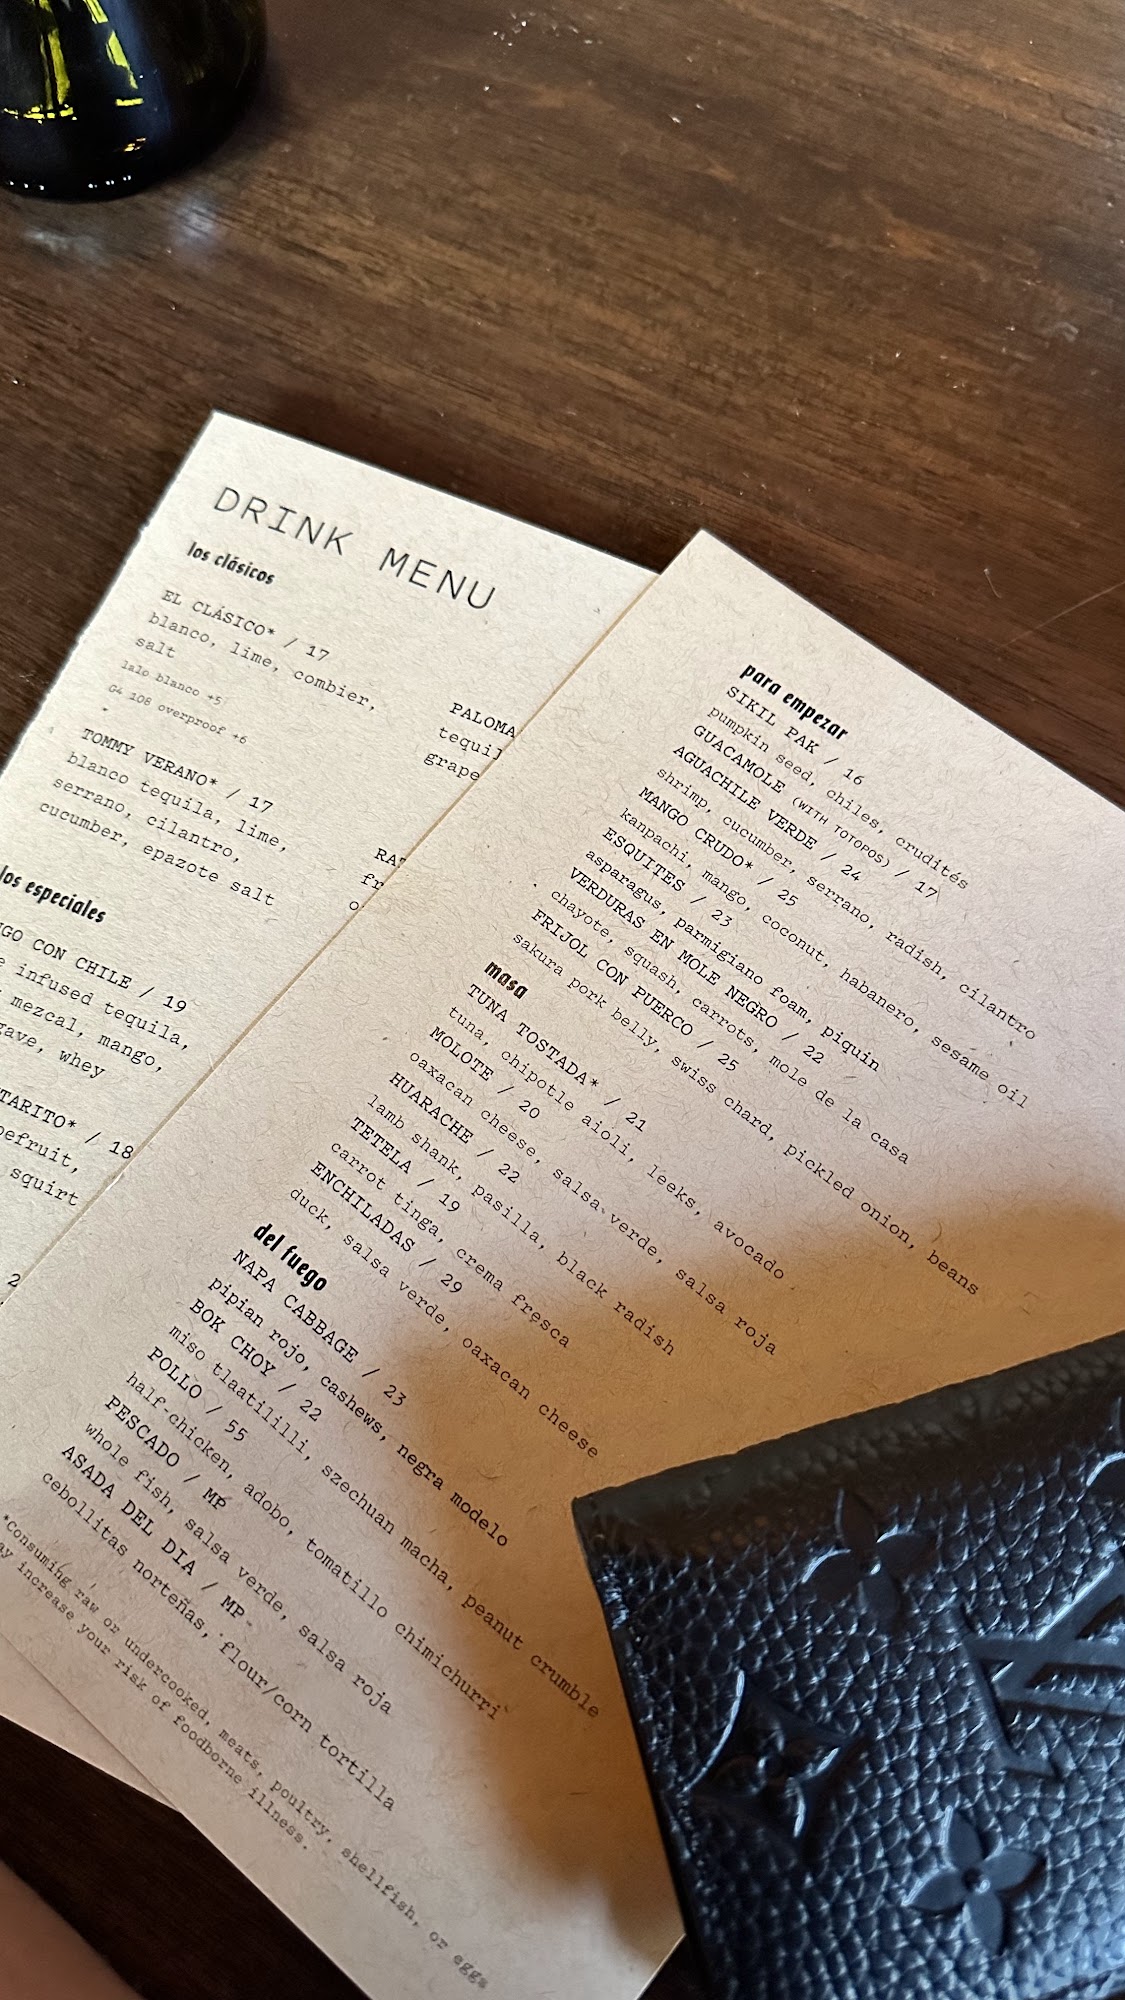 DRINK MENU
los clásicos
EL CLÁSICO* / 17
blanco, lime, combier,
salt
lalo blanco +5
G4 108 overproof +6
TOMMY VERANO* / 17
blanco tequila, lime,
serrano, cilantro,
cucumber, epazote salt
PALOMA
tequil
grape
los especiales
GO CON CHILE / 19
infused tequila,
mezcal, mango,
gave, whey
TARITO* / 18
pefruit,
squirt
2
para empezar
SIKIL PAK / 16
pumpkin seed, chiles, crudités
GUACAMOLE (WITH TOTOPOS) / 17
AGUACHILE VERDE / 24
shrimp, cucumber, serrano, radish, cilantro
MANGO CRUDO* / 25
kanpachi, mango, coconut, habanero, sesame oil
ESQUITES / 23
asparagus, parmigiano foam, piquin
VERDURAS EN MOLE NEGRO / 22
chayote, squash, carrots, mole de la casa
FRIJOL CON PUERCO / 25
sakura pork belly, swiss chard, pickled onion, beans
masa
TUNA TOSTADA* / 21
tuna, chipotle aioli, leeks, avocado
MOLOTE / 20
oaxacan cheese, salsa verde, salsa roja
HUARACHE / 22
lamb shank, pasilla, black radish
TETELA / 19
carrot tinga, crema fresca
ENCHILADAS / 29
duck, salsa verde, oaxacan cheese
del fuego
NAPA CABBAGE / 23
pipian rojo, cashews, negra modelo
BOK CHOY / 22
miso tlaatililli, szechuan macha, peanut crumble
POLLO / 55
half-chicken, adobo, tomatillo chimichurri
PESCADO / MP
whole fish, salsa verde, salsa roja
ASADA DEL DIA / MP
cebollitas norteñas, flour/corn tortilla
*Consuming raw or undercooked, meats, poultry, shellfish, or eggs
ay increase your risk of foodborne illness.